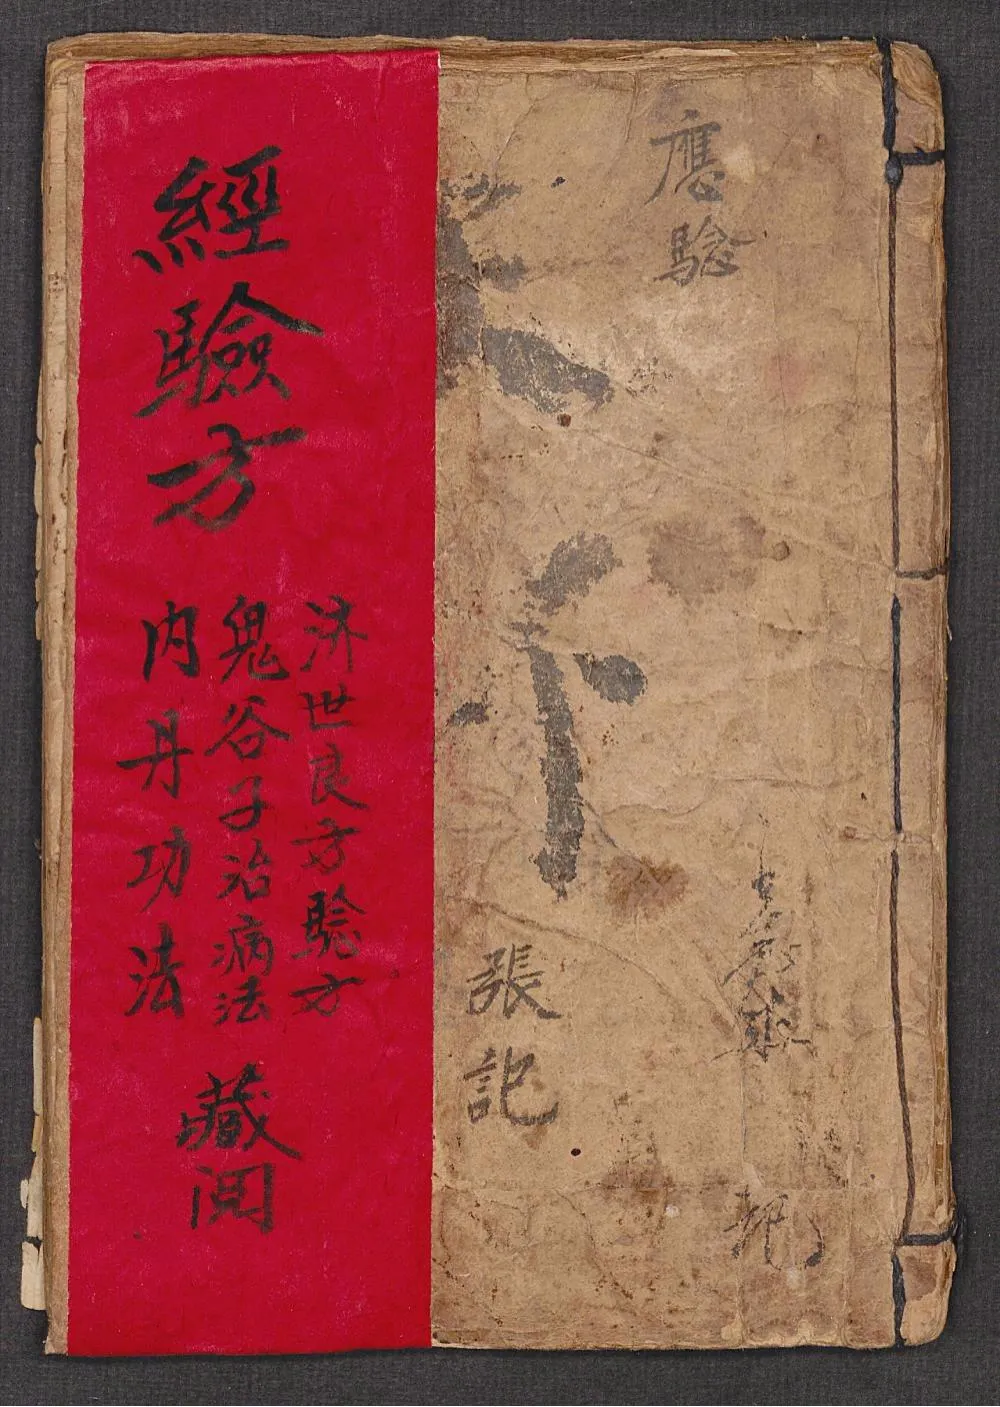 應
驗
張記
記
經驗方
济世良方驗方
鬼谷子治病法
内丹功法
藏阅